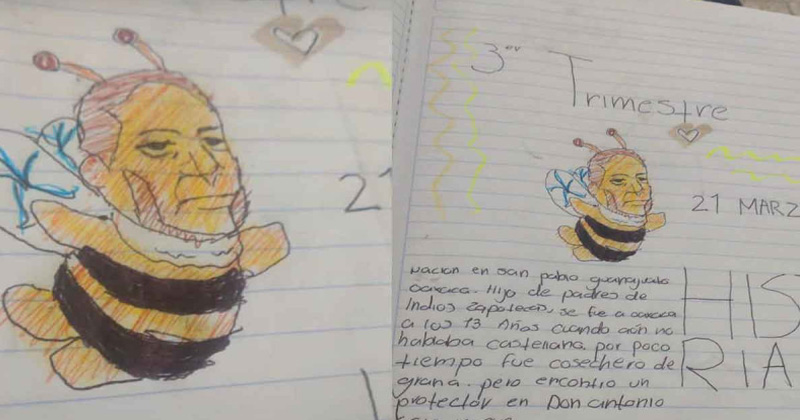 3er
Trimestre
21 MARZ
Nacion en san pablo
oaxaca. Hijo de padres de
Indios zapotecas, se fue a oaxaca
a los 13 Años cuando aún no
hablaba por poco
tiempo fue cosechero de
grana. pero encontro un
protector en Don antonio
HIS
RIA